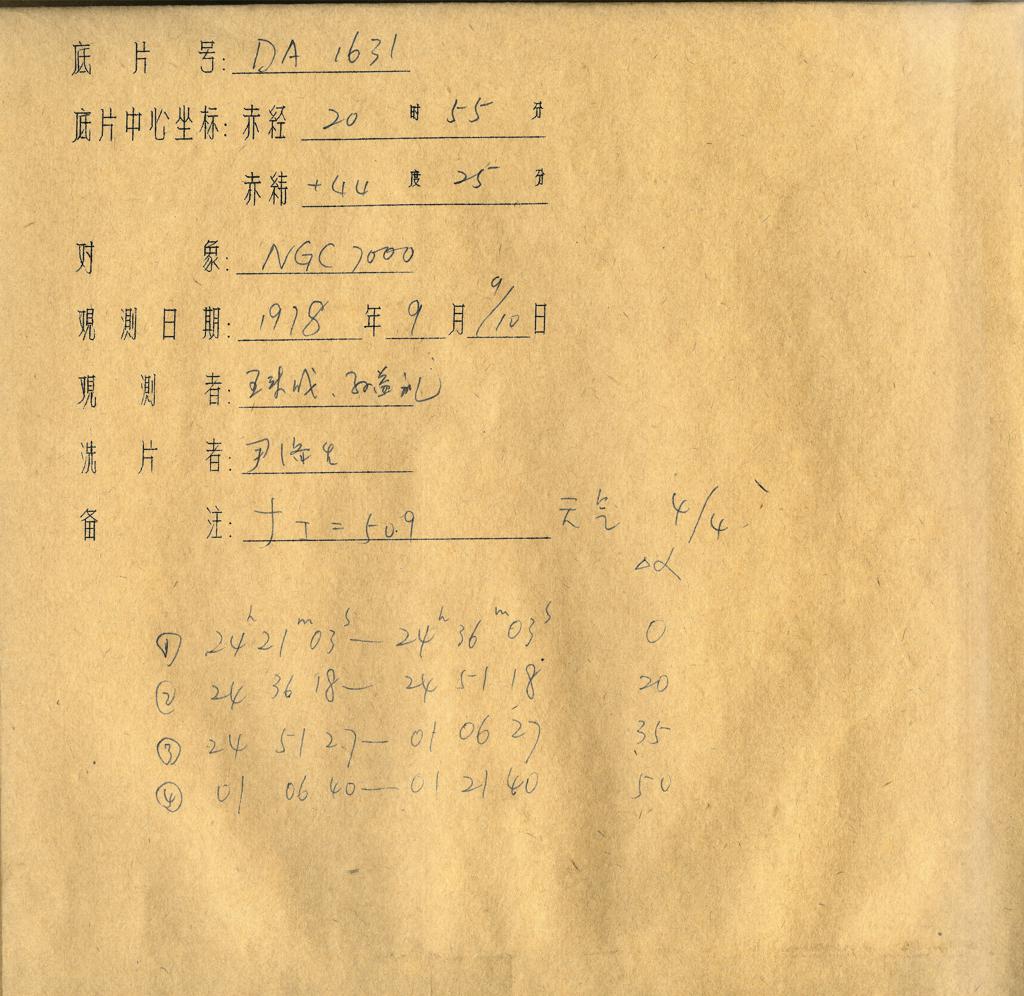 底片号: DA 1631
底片中心坐标: 赤经 20 时 55 分
赤纬 +44 度 25 分
对象: NGC 7000
观测日期: 1978 年 9 月 9/10 日
观测者: 孙益礼
洗片者: 尹
备注: = 50.9 天气 4/4
Δα
① 24h 21m 03s — 24h 36m 03s 0
② 24 36 18 — 24 51 18 20
③ 24 51 27 — 01 06 27 35
④ 01 06 40 — 01 21 40 50